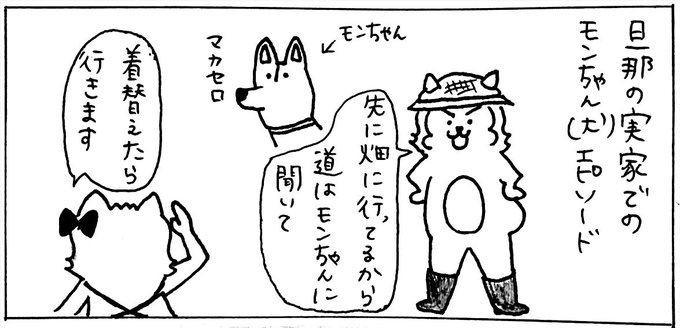 旦那の実家での
モンちゃん(犬)エピソード
先に畑に行ってるから
道はモンちゃんに
聞いて
モンちゃん
マカセロ
着替えたら
行きます